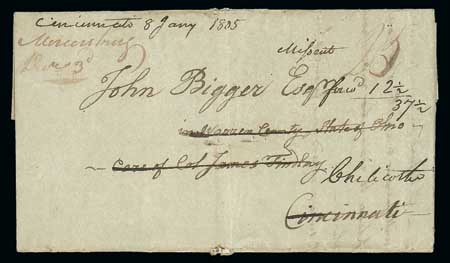 Cincinnato 8 Jany 1805
Mercersburg
Dec 3d
Missent
25
John Bigger Esqr forwd 12½
37½
in Warren County State of Ohio
care of Col James Findlay Chilicothe
Cincinnati